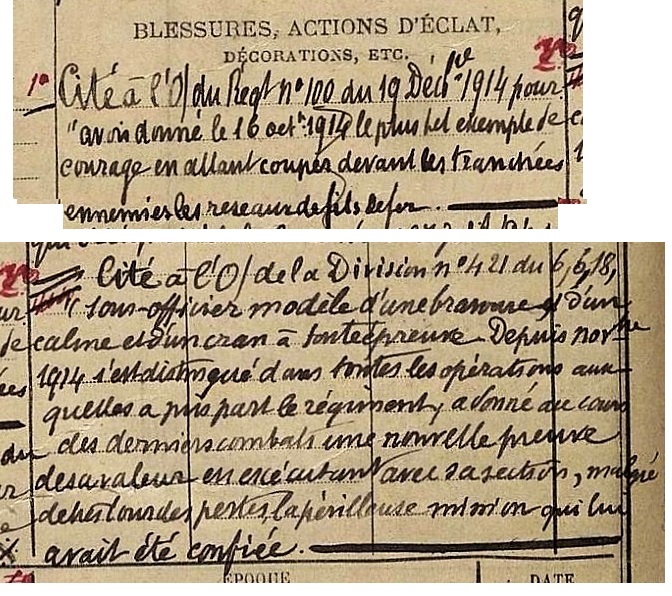 BLESSURES, ACTIONS D'ÉCLAT,
DÉCORATIONS, ETC.
1º Cité à l'O/ du Régt nº 100 du 19 Décbre 1914 pour
"avoir donné le 16 octe 1914 le plus bel exemple de
courage en allant couper devant les tranchées
ennemies les reseaux de fils de fer.
Cité à l'O/ de la Division nº 421 du 6,6,18,
"sous-officier modèle d'une bravoure et d'un
calme et d'un cran à toute épreuve. Depuis novbre
1914 s'est distingué dans toutes les opérations aux-
quelles a pris part le régiment, a donné au cours
des derniers combats une nouvelle preuve
de sa valeur en exécutant avec sa section, malgré
de très lourdes pertes, la périlleuse mission qui lui
avait été confiée.
ÉPOQUE DATE